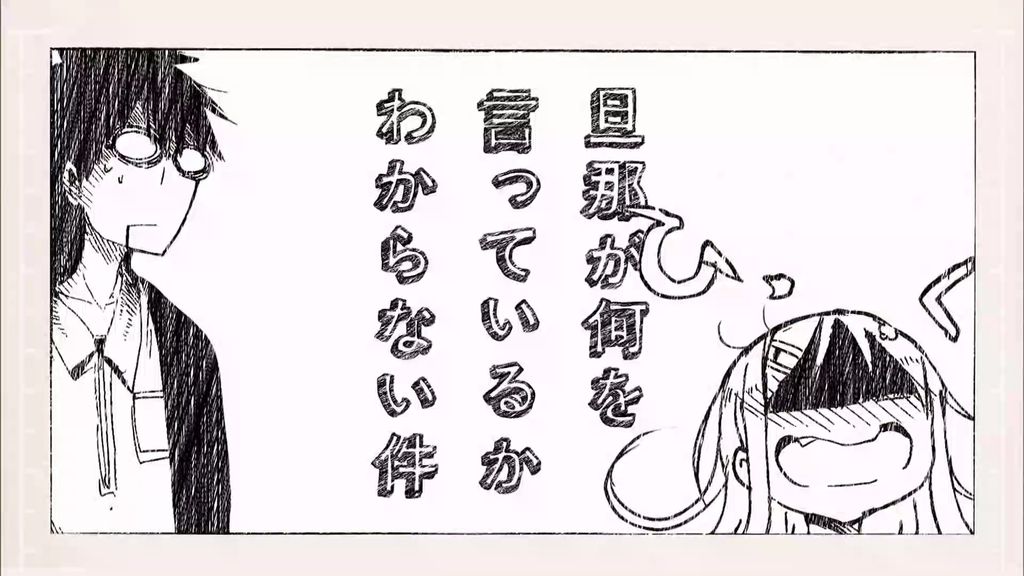 旦那が何を
言っているか
わからない件